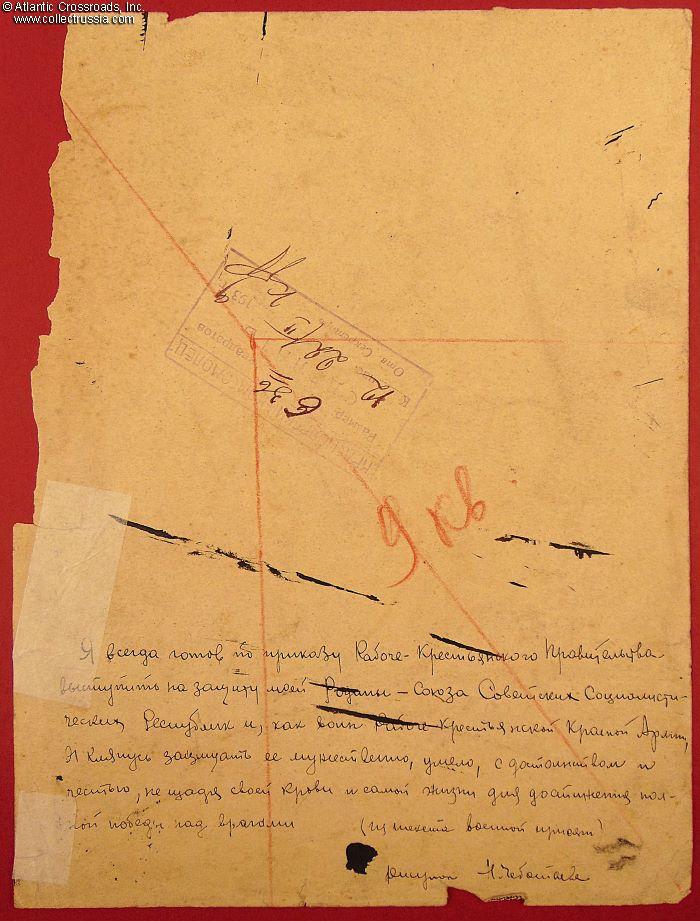 © Atlantic Crossroads, Inc.
www.collectrussia.com
9 кв
Я всегда готов по приказу Рабоче-Крестьянского Правительства
выступить на защиту моей Родины – Союза Советских Социалисти-
ческих Республик и, как воин Рабоче-Крестьянской Красной Армии,
Я клянусь защищать ее мужественно, умело, с достоинством и
честью, не щадя своей крови и самой жизни для достижения пол-
ной победы над врагами (из текста военной присяги)
рисунок